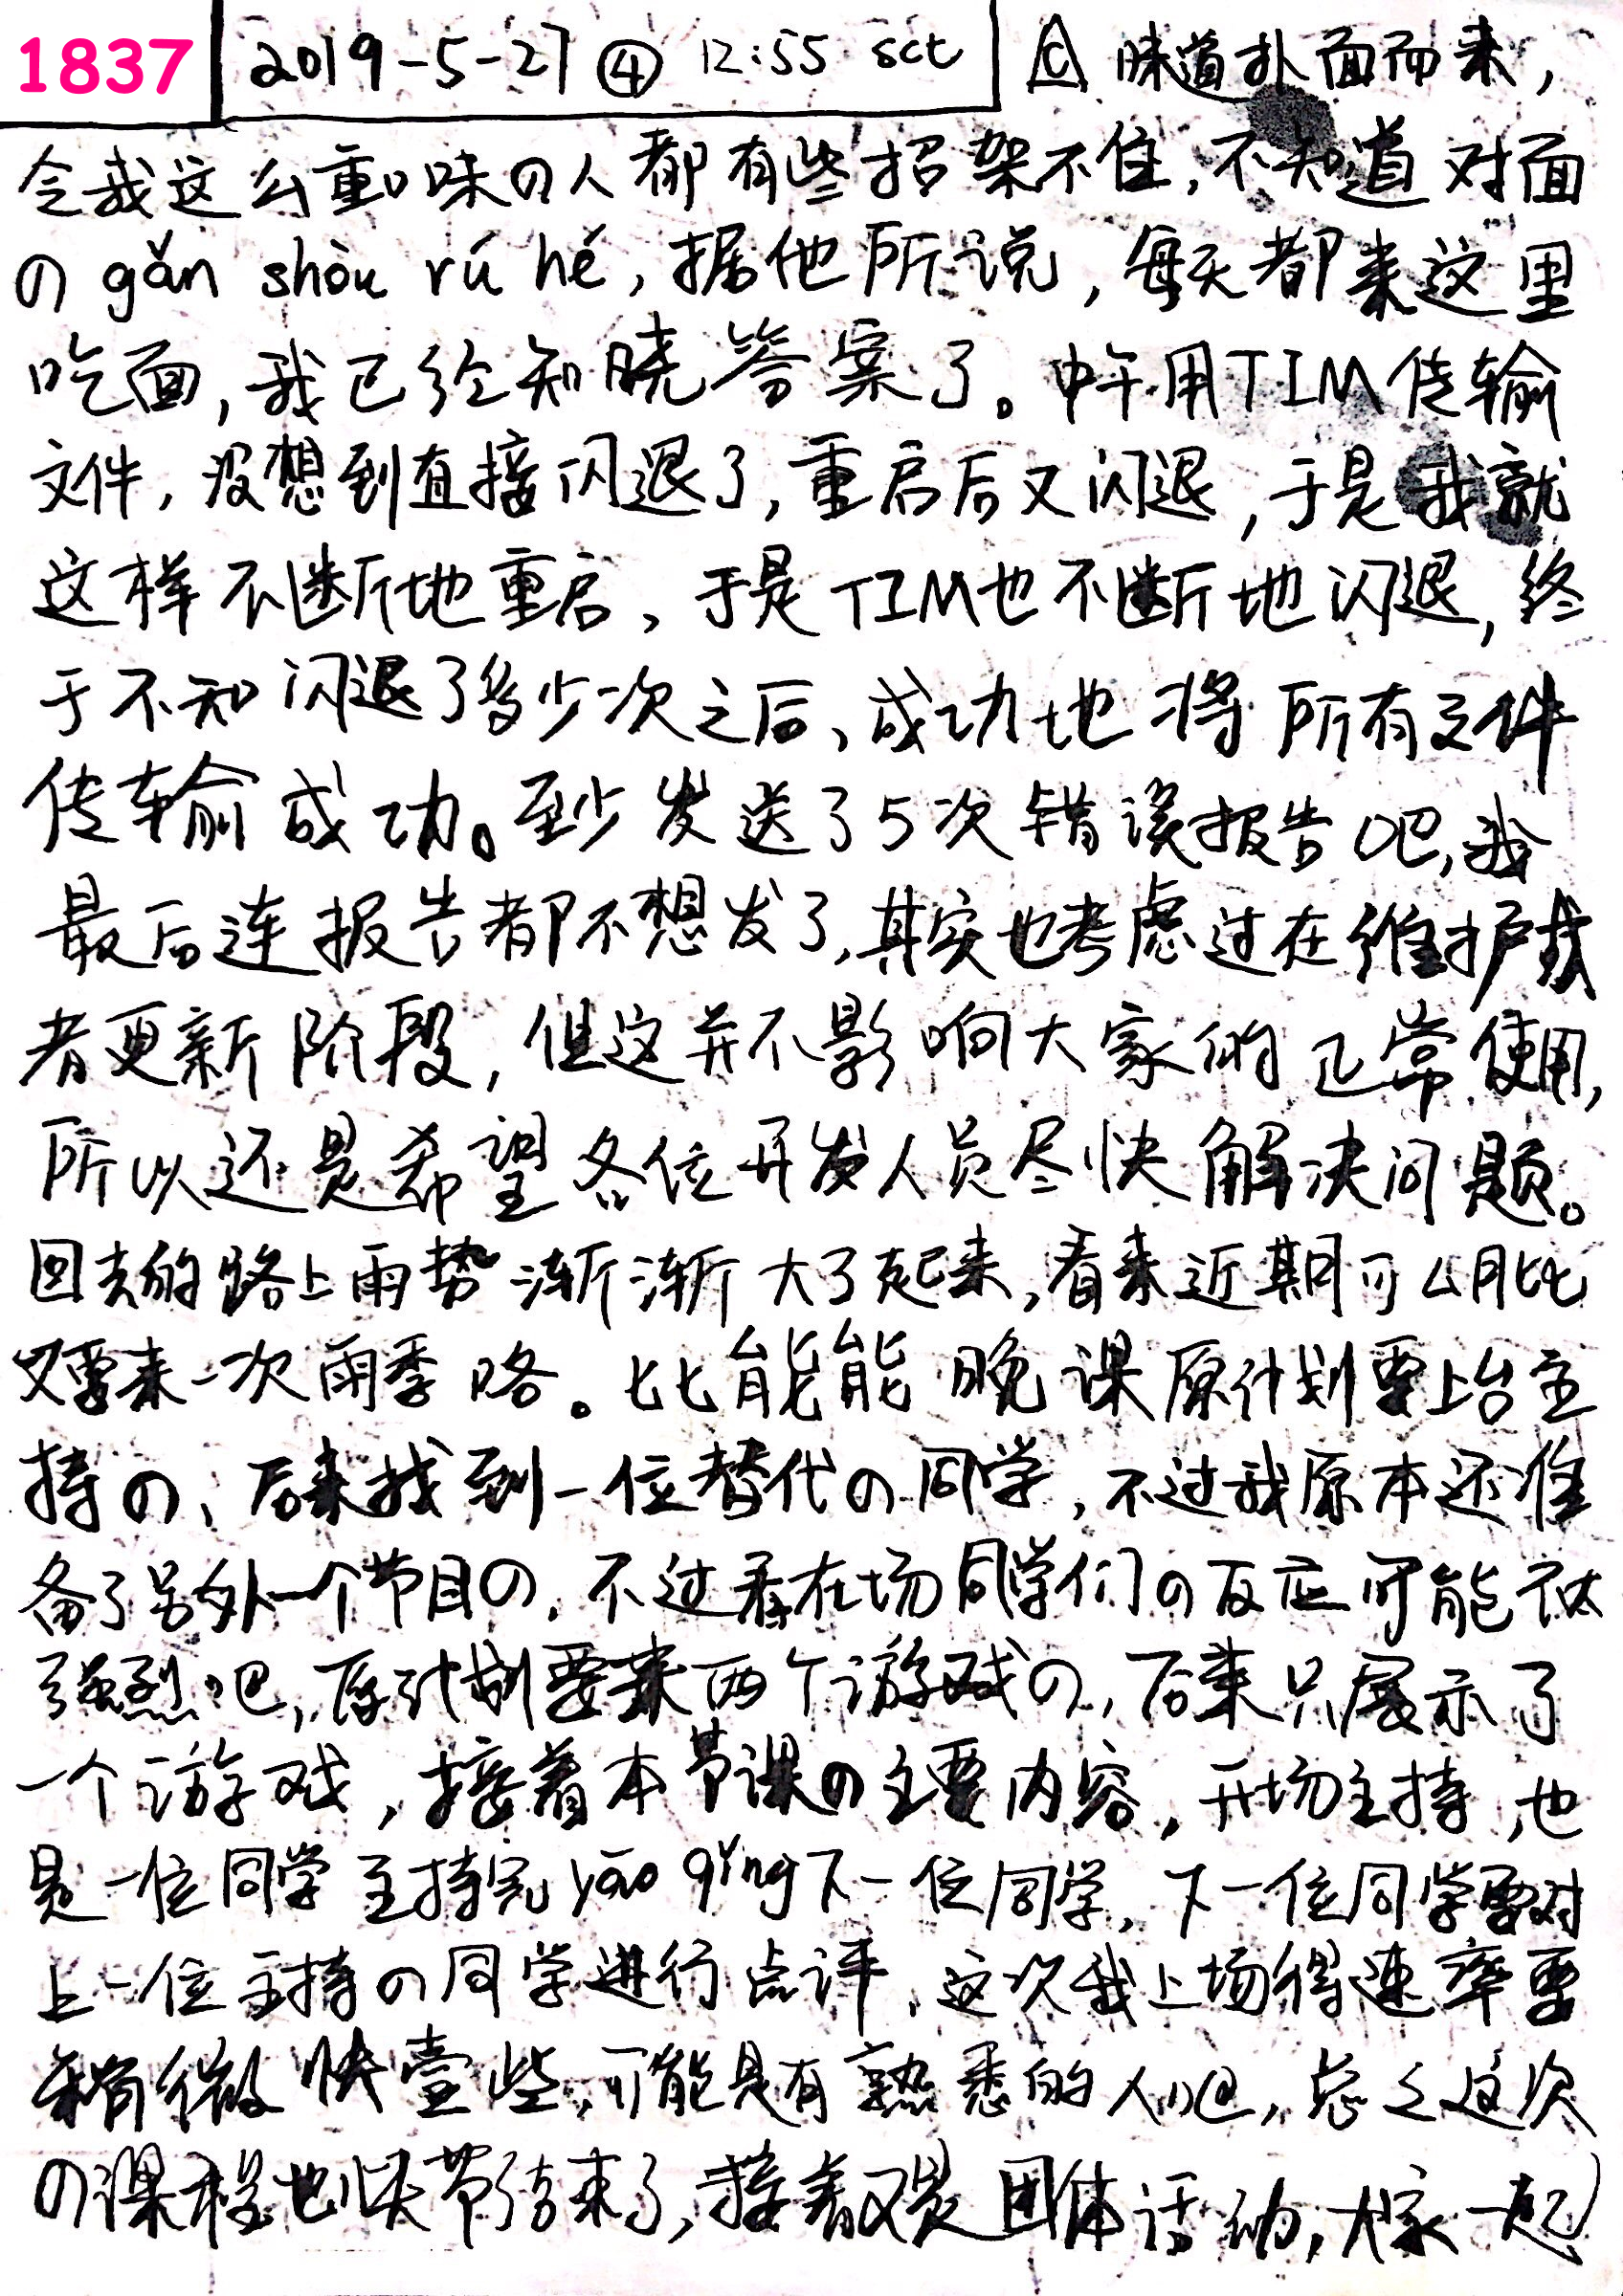 1837 2019-5-27 ④ 12:55 sct C 味道扑面而来,
令我这么重口味の人都有些招架不住,不知道对面
の gǎn shòu rú hé,据他所说,每天都来这里
吃面,我已经知晓答案了。中午用TIM传输
文件,没想到直接闪退了,重启后又闪退,于是我就
这样不断地重启、于是TIM也不断地闪退,终
于不知闪退了多少次之后、成功地将所有文件
传输成功。至少发送了5次错误报告吧,我
最后连报告都不想发了,其实也考虑过在维护或
者更新阶段,但这并不影响大家的正常使用,
所以还是希望各位开发人员尽快解决问题。
回去的路上雨势渐渐大了起来,看来近期可能
又要来一次雨季咯。比能能晚课原计划要上台主
持の、后来找到一位替代の同学,不过我原本还准
备了另外一个节目の,不过看在场同学们の反应可能不太
强烈吧,原计划要来两个游戏の,后来只展示了
一个游戏,接着本节课の主要内容,开场主持,也
是一位同学主持完 yāo qǐng 下一位同学,下一位同学要对
上一位主持の同学进行点评,这次我上场得速率要
稍微快壹些,可能是有熟悉的人吧,总之这次
の课程也快节结束了,接着又是团体活动,大家一起